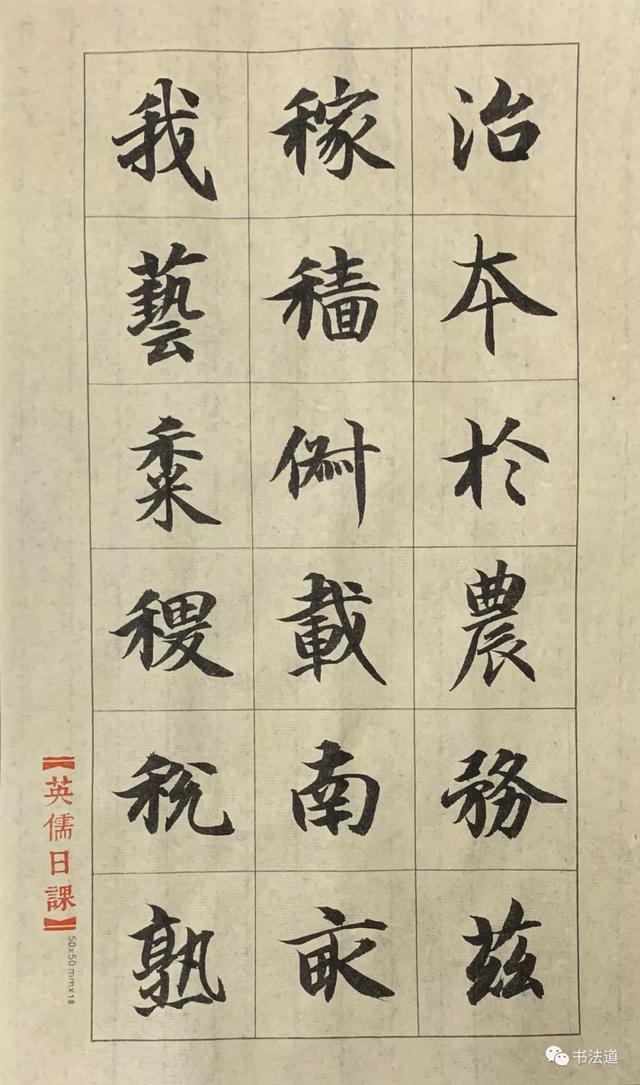 治本於農務茲
稼穡俶載南畝
我藝黍稷稅熟
【英儒日課】
50x50mmx18
书法道